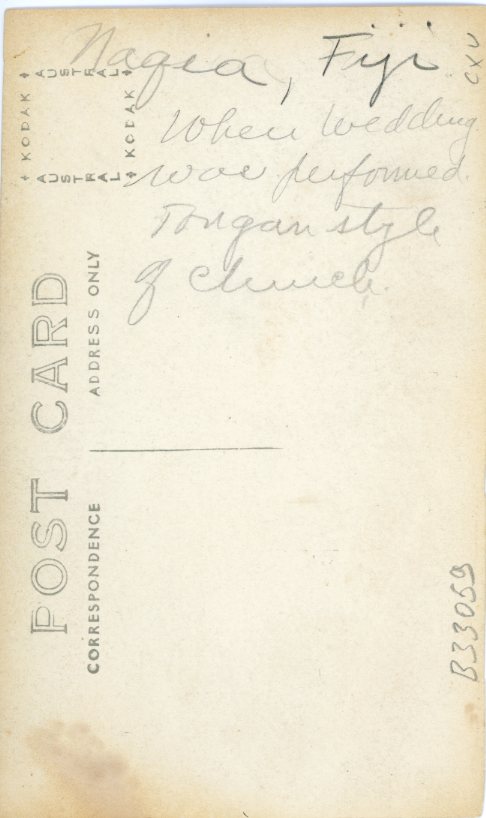 Naqia, Fiji
When wedding
was performed.
Tongan style
of church.
CXV
B33059
POST CARD
CORRESPONDENCE
ADDRESS ONLY
KODAK
AUSTRAL
KODAK
AUSTRAL